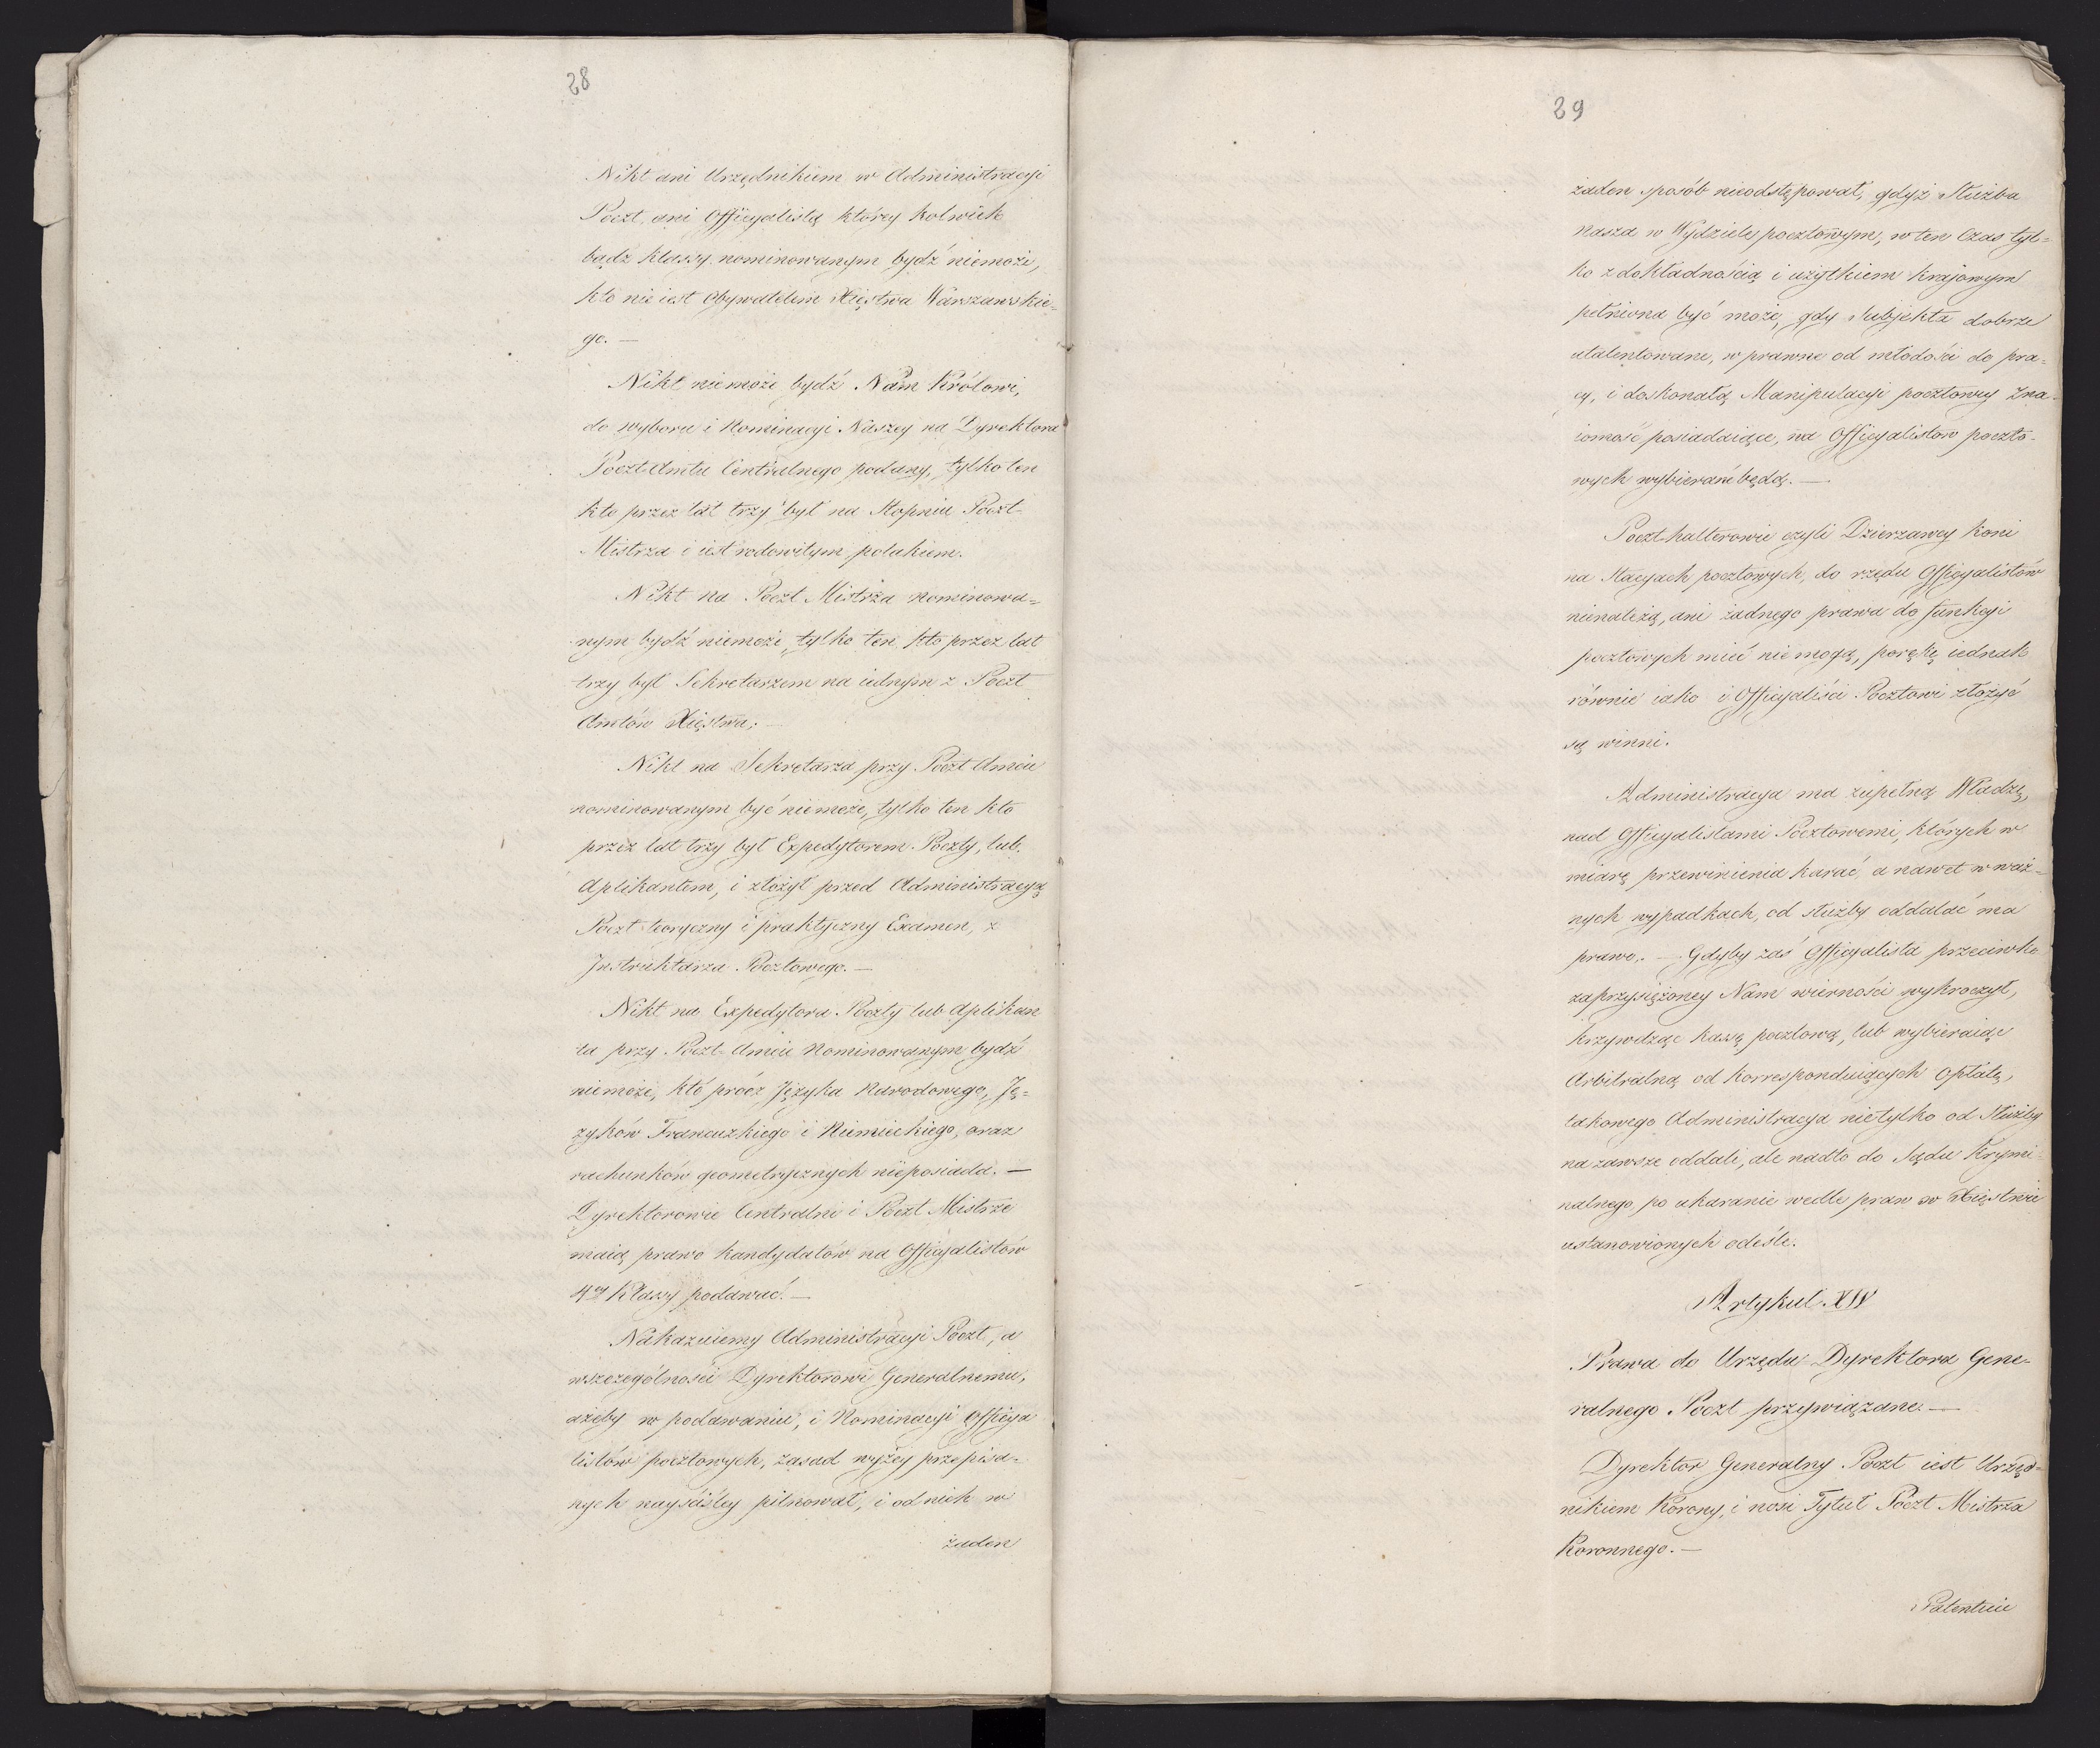 28
Nikt ani Urzędnikiem w Administracyi
Poczt, ani Officyalistą którey kolwiek
bądz klassy nominowanym bydź niemoże,
kto nie iest Obywatelem Xięstwa Warszawskie=
go. —
Nikt niemoże bydź Nam Królowi,
do wyboru i Nominacyi Naszey na Dyrektora
Poczt-Amtu Centralnego podany, tylko ten
kto przez lat trzy był na Stopniu Poczt-
Mistrza i iest rodowitym polakiem.
Nikt na Poczt Mistrza nominowa=
nym bydź niemoże, tylko ten kto przez lat
trzy był Sekretarzem na iednym z Poczt
Amtów Xięstwa. —
Nikt na Sekretarza przy Poczt Amcie
nominowanym być niemoże, tylko ten kto
przez lat trzy był Expedytorem Poczty, lub
Aplikantem, i złożył przed Administracyą
Poczt teoryczny i praktyczny Examen, z
Instruktarza Pocztowego. —
Nikt na Expedytora Poczty lub Aplikan
ta przy Poczt-Amcie Nominowanym bydź
niemoże, kto prócz Języka Narodowego, Ję=
zyków Francuzkiego i Niemieckiego, oraz
rachunków geometrycznych nieposiada. —
Dyrektorowie Centralni i Poczt Mistrze
maią prawo kandydatów na Officyalistów
4ey Klassy podawać. —
Nakazuiemy Administracyi Poczt, a
wszczególności Dyrektorowi Generalnemu,
ażeby w podawaniu, i Nominacyi Officya
listów pocztowych, zasad wyżey przepisa=
nych nayściśley pilnował, i od nich w
żaden
29
żaden sposób nieodstępował, gdyż Służba
Nasza w Wydziele pocztowym, w ten Czas tyl=
ko z dokładnością i użytkiem krajowym
pełniona być może, gdy Subjekta dobrze
utalentowane, w prawne od młodości do pra=
cy, i doskonałą Manipulacyi pocztowey zna=
iomość posiadaiące, na Officyalistów poczto-
wych wybierani będą. —
Poczt-halterowie czyli Dzierzawcy koni
na Stacyach pocztowych, do rzędu Officyalistów
nienależą, ani żadnego prawa do funkcyi
pocztowych mieć nie mogą, porękę iednak
równie iako i Officyaliści Pocztowi złożyć
są winni.
Administracya ma zupełną Władzę,
nad Officyalistami Pocztowemi, których w
miarę przewinienia karać, a nawet w waż=
nych wypadkach, od służby oddalać ma
prawo. — Gdyby zaś Officyalista przeciwko
zaprzysiężoney Nam wierności wykroczył,
krzywdząc kassę pocztową, lub wybieraiąc
Arbitralną od Korresponduiących Opłatę,
takowego Administracya nietylko od Służby
na zawsze oddali, ale nadto do Sądu Krymi
nalnego po ukaranie wedle praw w Xięstwie
ustanowionych odeśle.
Artykuł XIV
Prawa do Urzędu Dyrektora Gene-
ralnego Poczt przywiązane. —
Dyrektor Generalny Poczt iest Urzęd=
nikiem Korony, i nosi Tytuł Poczt Mistrza
Koronnego. —
Patentuie